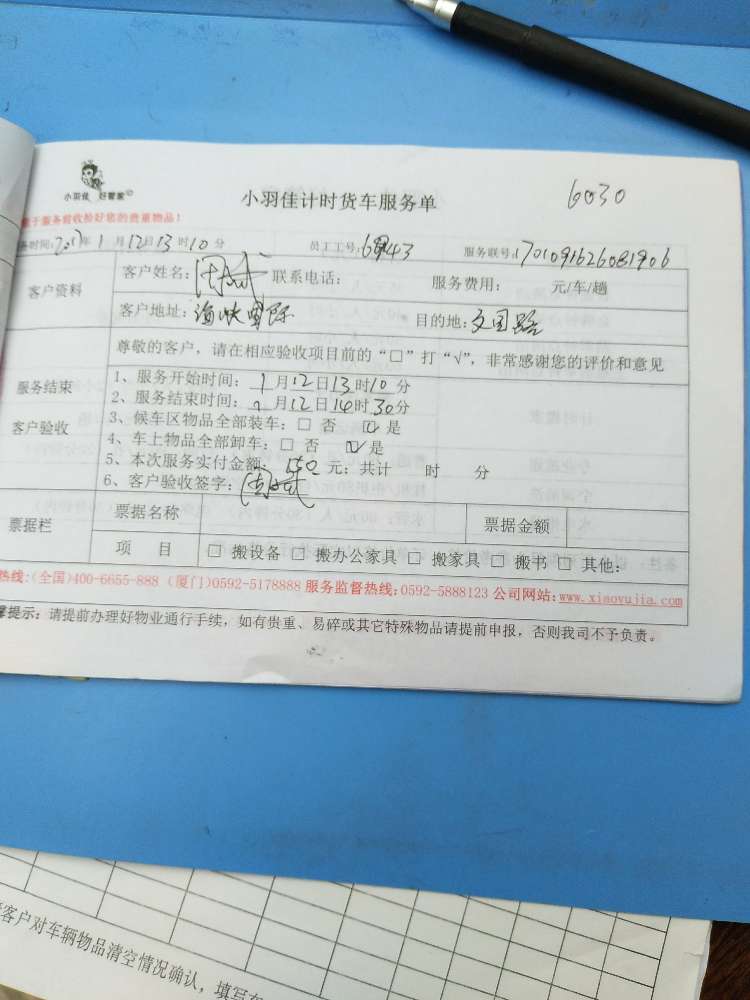 小羽佳 好管家
小羽佳计时货车服务单
6030
于服务前收捡好您的贵重物品!
务时间: 年 1 月 12 日 13 时 10 分 员工工号: 服务联号:
客户资料
客户姓名: 联系电话: 服务费用: 元/车/趟
客户地址: 海峡国际 目的地: 文园路
尊敬的客户, 请在相应验收项目前的“□”打“√”, 非常感谢您的评价和意见
服务结束
客户验收
1、服务开始时间: 1 月 12 日 13 时 10 分
2、服务结束时间: 月 12 日 14 时 30 分
3、候车区物品全部装车: □ 否 ☑ 是
4、车上物品全部卸车: □ 否 ☑ 是
5、本次服务实付金额: 元; 共计 时 分
6、客户验收签字:
票据栏
票据名称 票据金额
项 目 □ 搬设备 □ 搬办公家具 □ 搬家具 □ 搬书 □ 其他:
热线:(全国)400-6655-888 (厦门)0592-5178888 服务监督热线:0592-5888123 公司网站:www.xiaoyujia.com
提示: 请提前办理好物业通行手续, 如有贵重、易碎或其它特殊物品请提前申报, 否则我司不予负责。
客户对车辆物品清空情况确认, 填写在